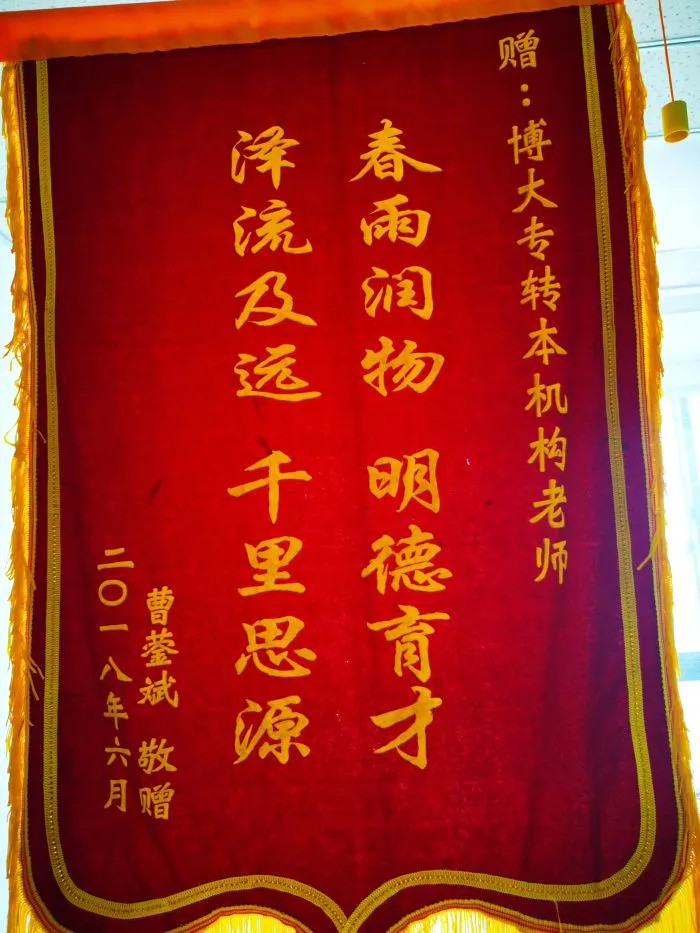 赠：博大专转本机构老师
春雨润物 明德育才
泽流及远 千里思源
曹蓥斌 敬赠
二〇一八年六月